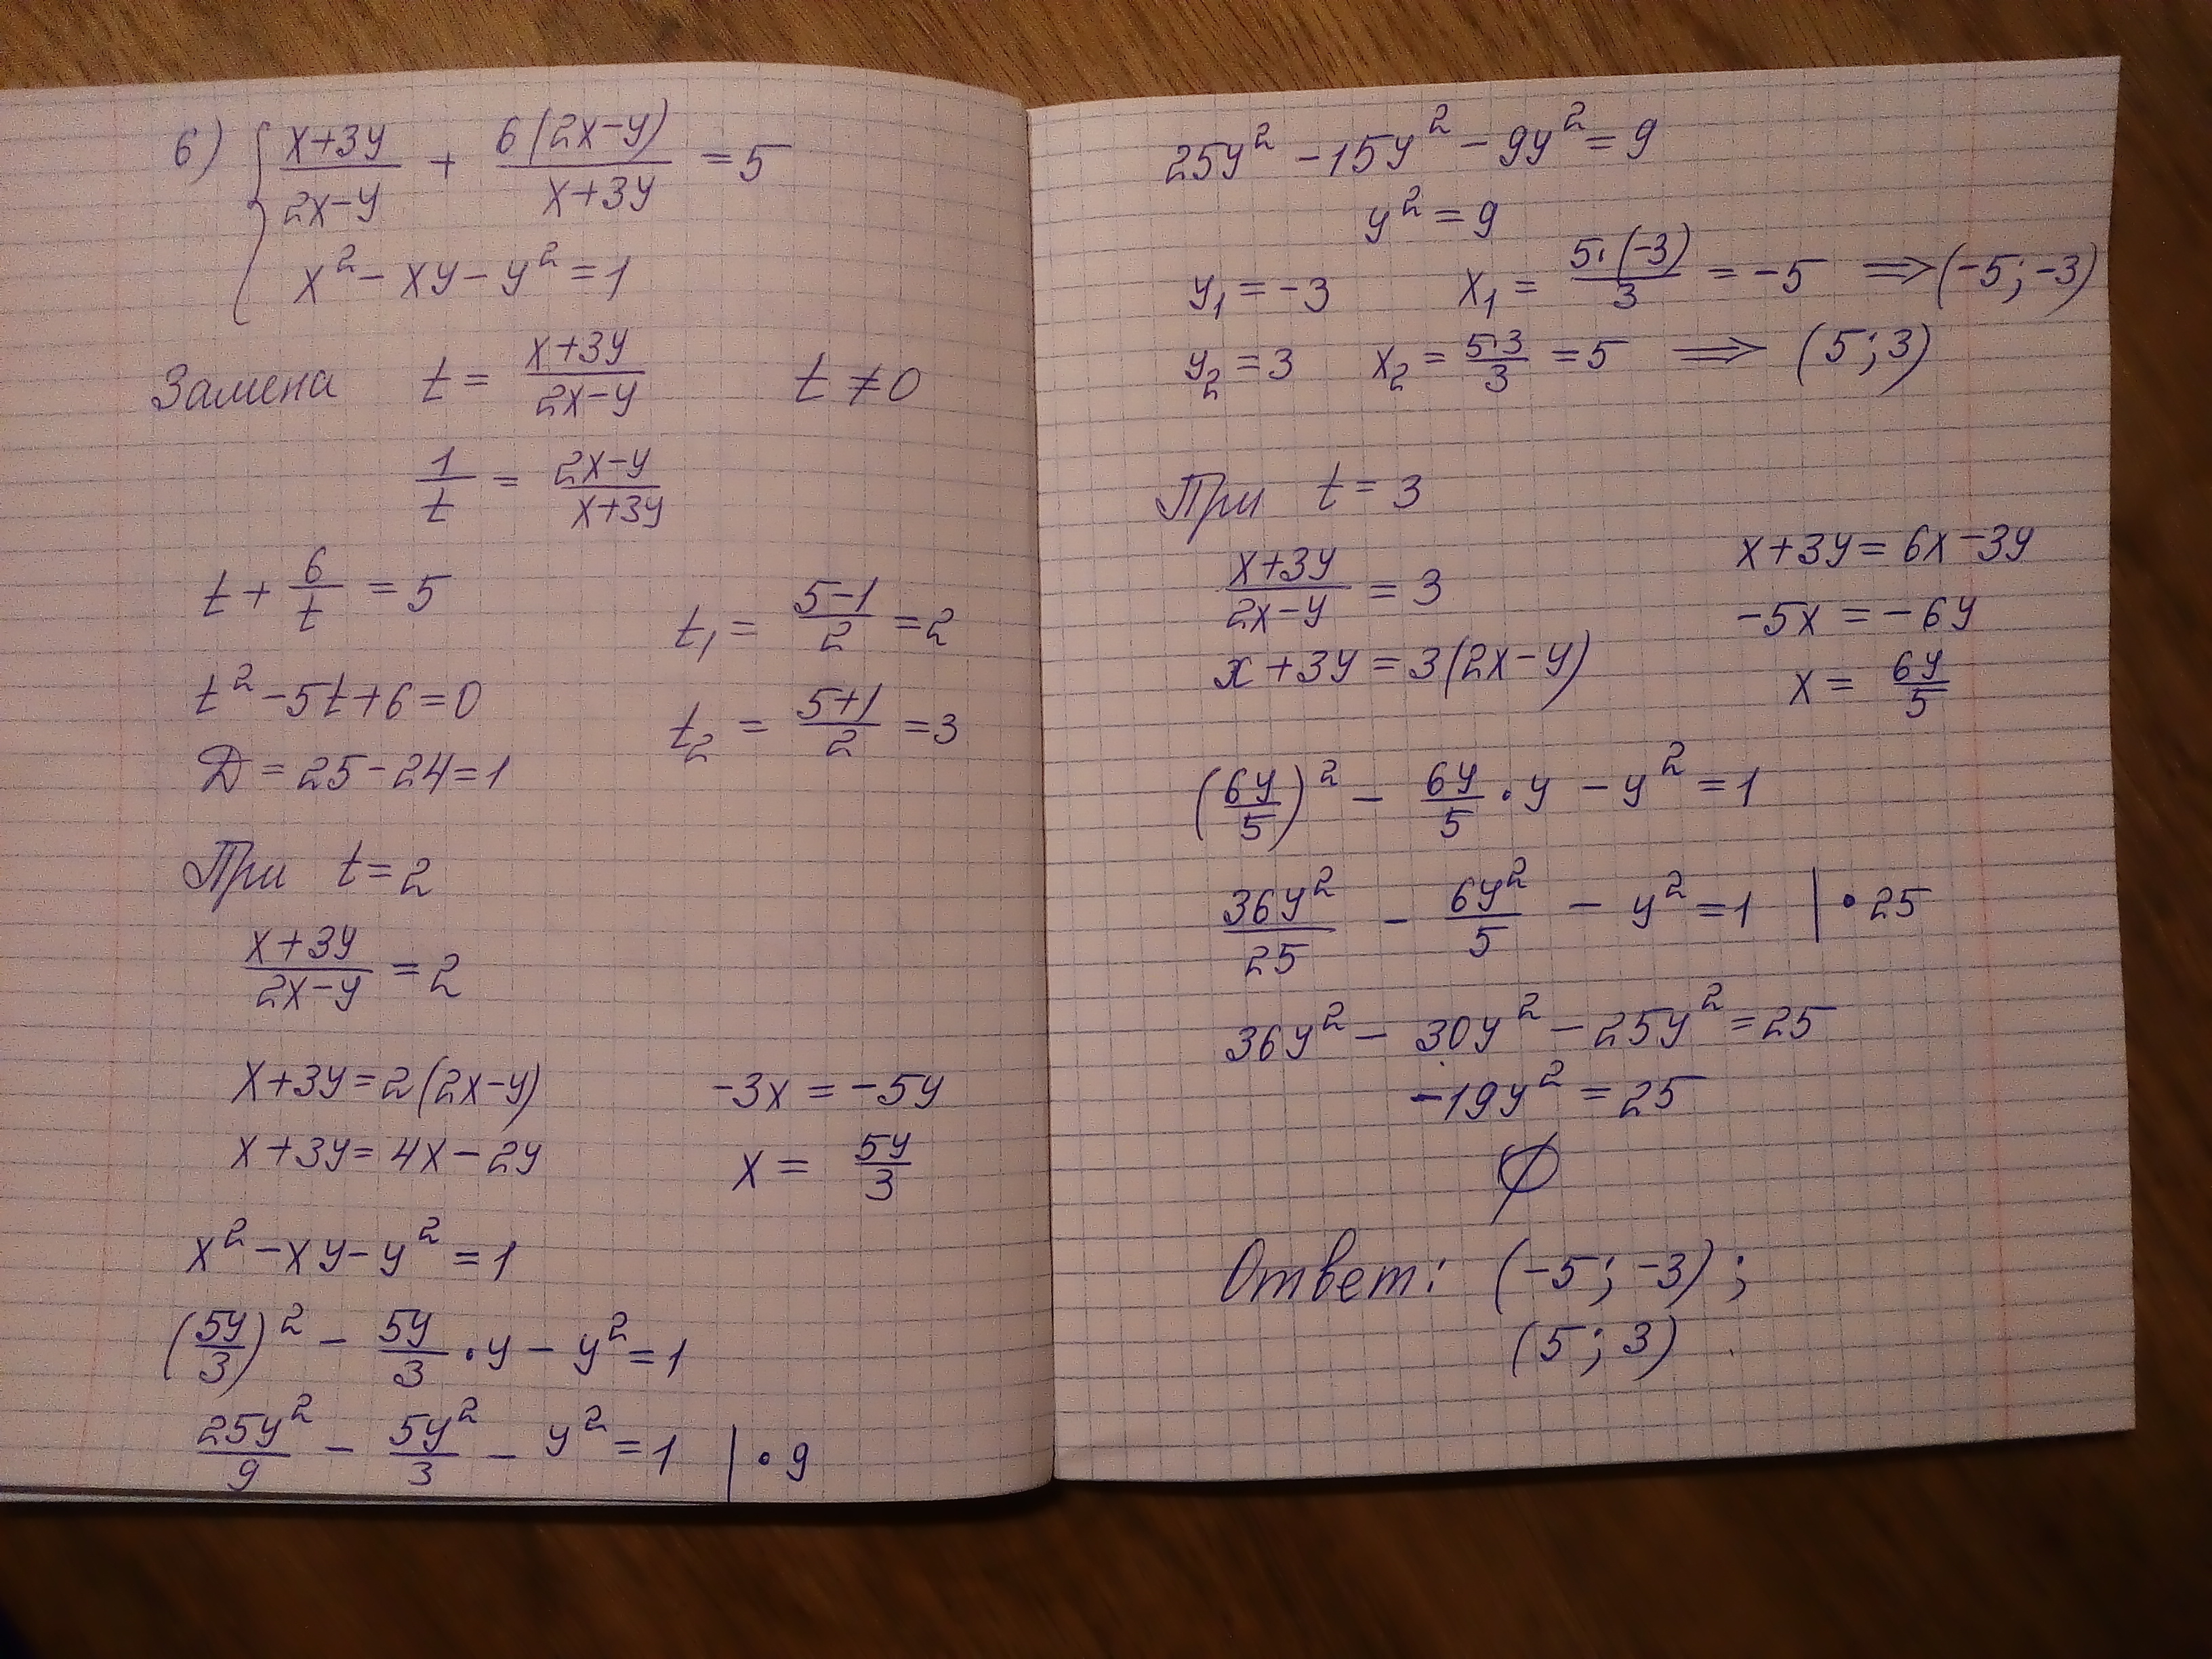 6) { (x+3y)/(2x-y) + 6(2x-y)/(x+3y) = 5
x² - xy - y² = 1
Замена t = (x+3y)/(2x-y) t ≠ 0
1/t = (2x-y)/(x+3y)
t + 6/t = 5
t² - 5t + 6 = 0
Д = 25 - 24 = 1
t₁ = (5-1)/2 = 2
t₂ = (5+1)/2 = 3
При t = 2
(x+3y)/(2x-y) = 2
x+3y = 2(2x-y)
x+3y = 4x - 2y
-3x = -5y
x = 5y/3
x² - xy - y² = 1
(5y/3)² - 5y/3 · y - y² = 1
25y²/9 - 5y²/3 - y² = 1 | · 9
25y² - 15y² - 9y² = 9
y² = 9
y₁ = -3 x₁ = 5·(-3)/3 = -5 ⇒ (-5; -3)
y₂ = 3 x₂ = 5·3/3 = 5 ⇒ (5; 3)
При t = 3
(x+3y)/(2x-y) = 3
x+3y = 3(2x-y)
x+3y = 6x-3y
-5x = -6y
x = 6y/5
(6y/5)² - 6y/5 · y - y² = 1
36y²/25 - 6y²/5 - y² = 1 | · 25
36y² - 30y² - 25y² = 25
-19y² = 25
∅
Ответ: (-5; -3);
(5; 3).